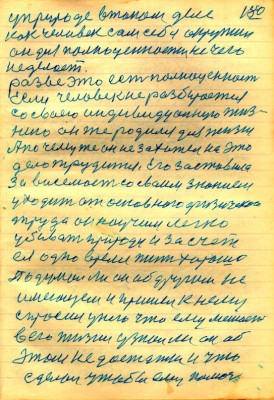 у природе в таком деле 150
как человек сам себя окружил
он для полноценности ничего
не делает.
Разве это есть полноценность
Если человек не разбирается
со своею индивидуанную жиз-
нию он же родился для жизни
А почему же он не захотел на это
дело трудится. Его заставила
зависемость со своим знанием
уходить от основного физического
труда он научился легко
убивать природу и за счет
ея одно время жить хорошо
Подумал ли он об другим не
имеющем и пришел к нему
спросил у него что ему мешает
в его жизни узнал ли он об
этом недостатки и что
сделал чтобы ему помочь